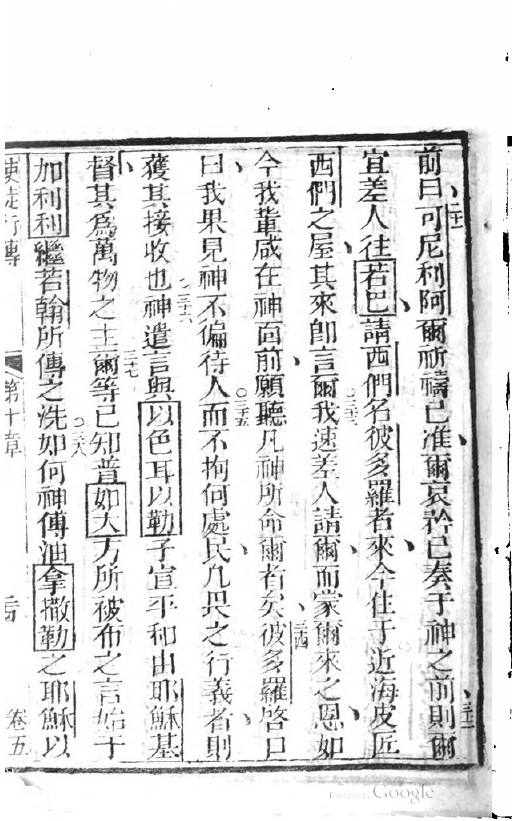 前曰可尼利阿爾祈禱已准爾哀矜已奏于神之前則爾
宜差人往若巴請西們名彼多羅者來今住于近海皮匠
西們之屋其來卽言爾我速差人請爾而蒙爾來之恩如
今我輩咸在神面前願聽凡神所命爾者矣彼多羅啓口
曰我果見神不偏待人而不拘何處民凡畏之行義者則
獲其接收也神遣言與以色耳以勒子宣平和由耶穌基
督其爲萬物之主爾等已知普如大方所被布之言始于
加利利繼若翰所傳之洗如何神傅油拿撒勒之耶穌以
使徒行傳 第十章 卷五
三十一
三十二
三十三
三十四
三十五
三十六
三十七
三十八
Digitized by Google